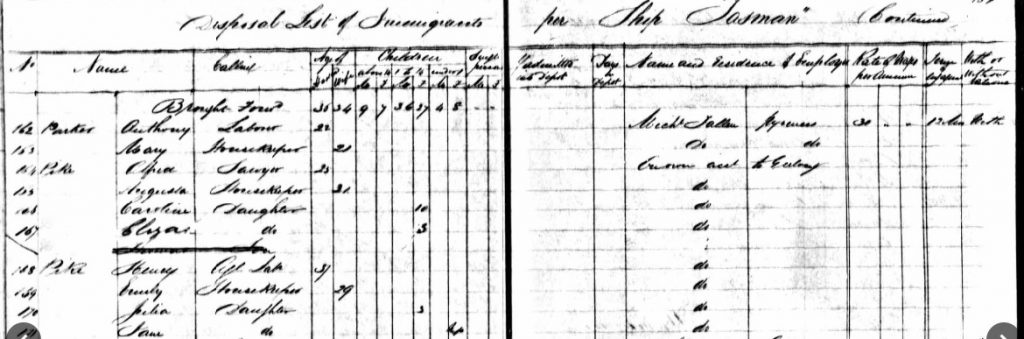 Disposal List of Immigrants per Ship Tasman" Continued
No Name Calling Age of Children Single persons Admitted into Depot Days in Depot Name and residence of Employer Rate of Wages per Annum Term With or Without Rations
Brought Forwd 35 34 9 7 36 37 4 8
162 Parker Anthony Labour 22 Pyrenees 30 12 With
163 Mary Housekeeper 21 Do do
164 Pike Sawyer own acct to Geelong
165 Augusta Housekeeper 31 do
166 Caroline Daughter 10 do
167 Eliza do 3 do
168 Pike Henry 31 do
169 Emily Housekeeper 29 do
170 Julia Daughter 3 do
Jane do do